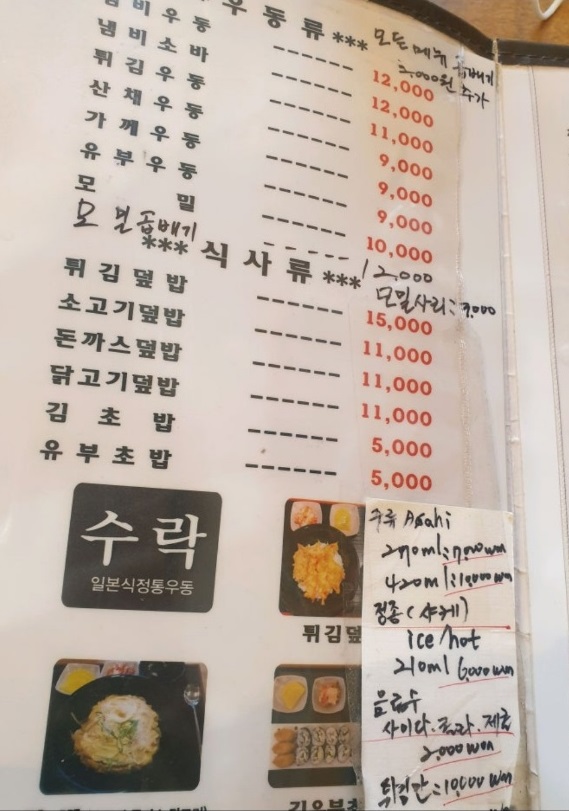 우동류***
모든 메뉴 곱배기
3,000원 추가
냄비우동 ------ 12,000
냄비소바 ------ 12,000
튀김우동 ------ 11,000
산채우동 ------ 9,000
가께우동 ------ 9,000
유부우동 ------ 9,000
모밀 ------ 10,000
모밀곱배기 ------ 12,000
*** 식사류 ***
모밀사리: 7,000
튀김덮밥 ------ 15,000
소고기덮밥 ------ 11,000
돈까스덮밥 ------ 11,000
닭고기덮밥 ------ 11,000
김초밥 ------ 5,000
유부초밥 ------ 5,000
수락
일본식정통우동
튀김덮
주류 Asahi
270ml:7,000won
420ml:
정종(사케)
ice/hot
210ml 6,000won
음료수
사이다.콜라.제로
2,000won
튀김만:10,000won